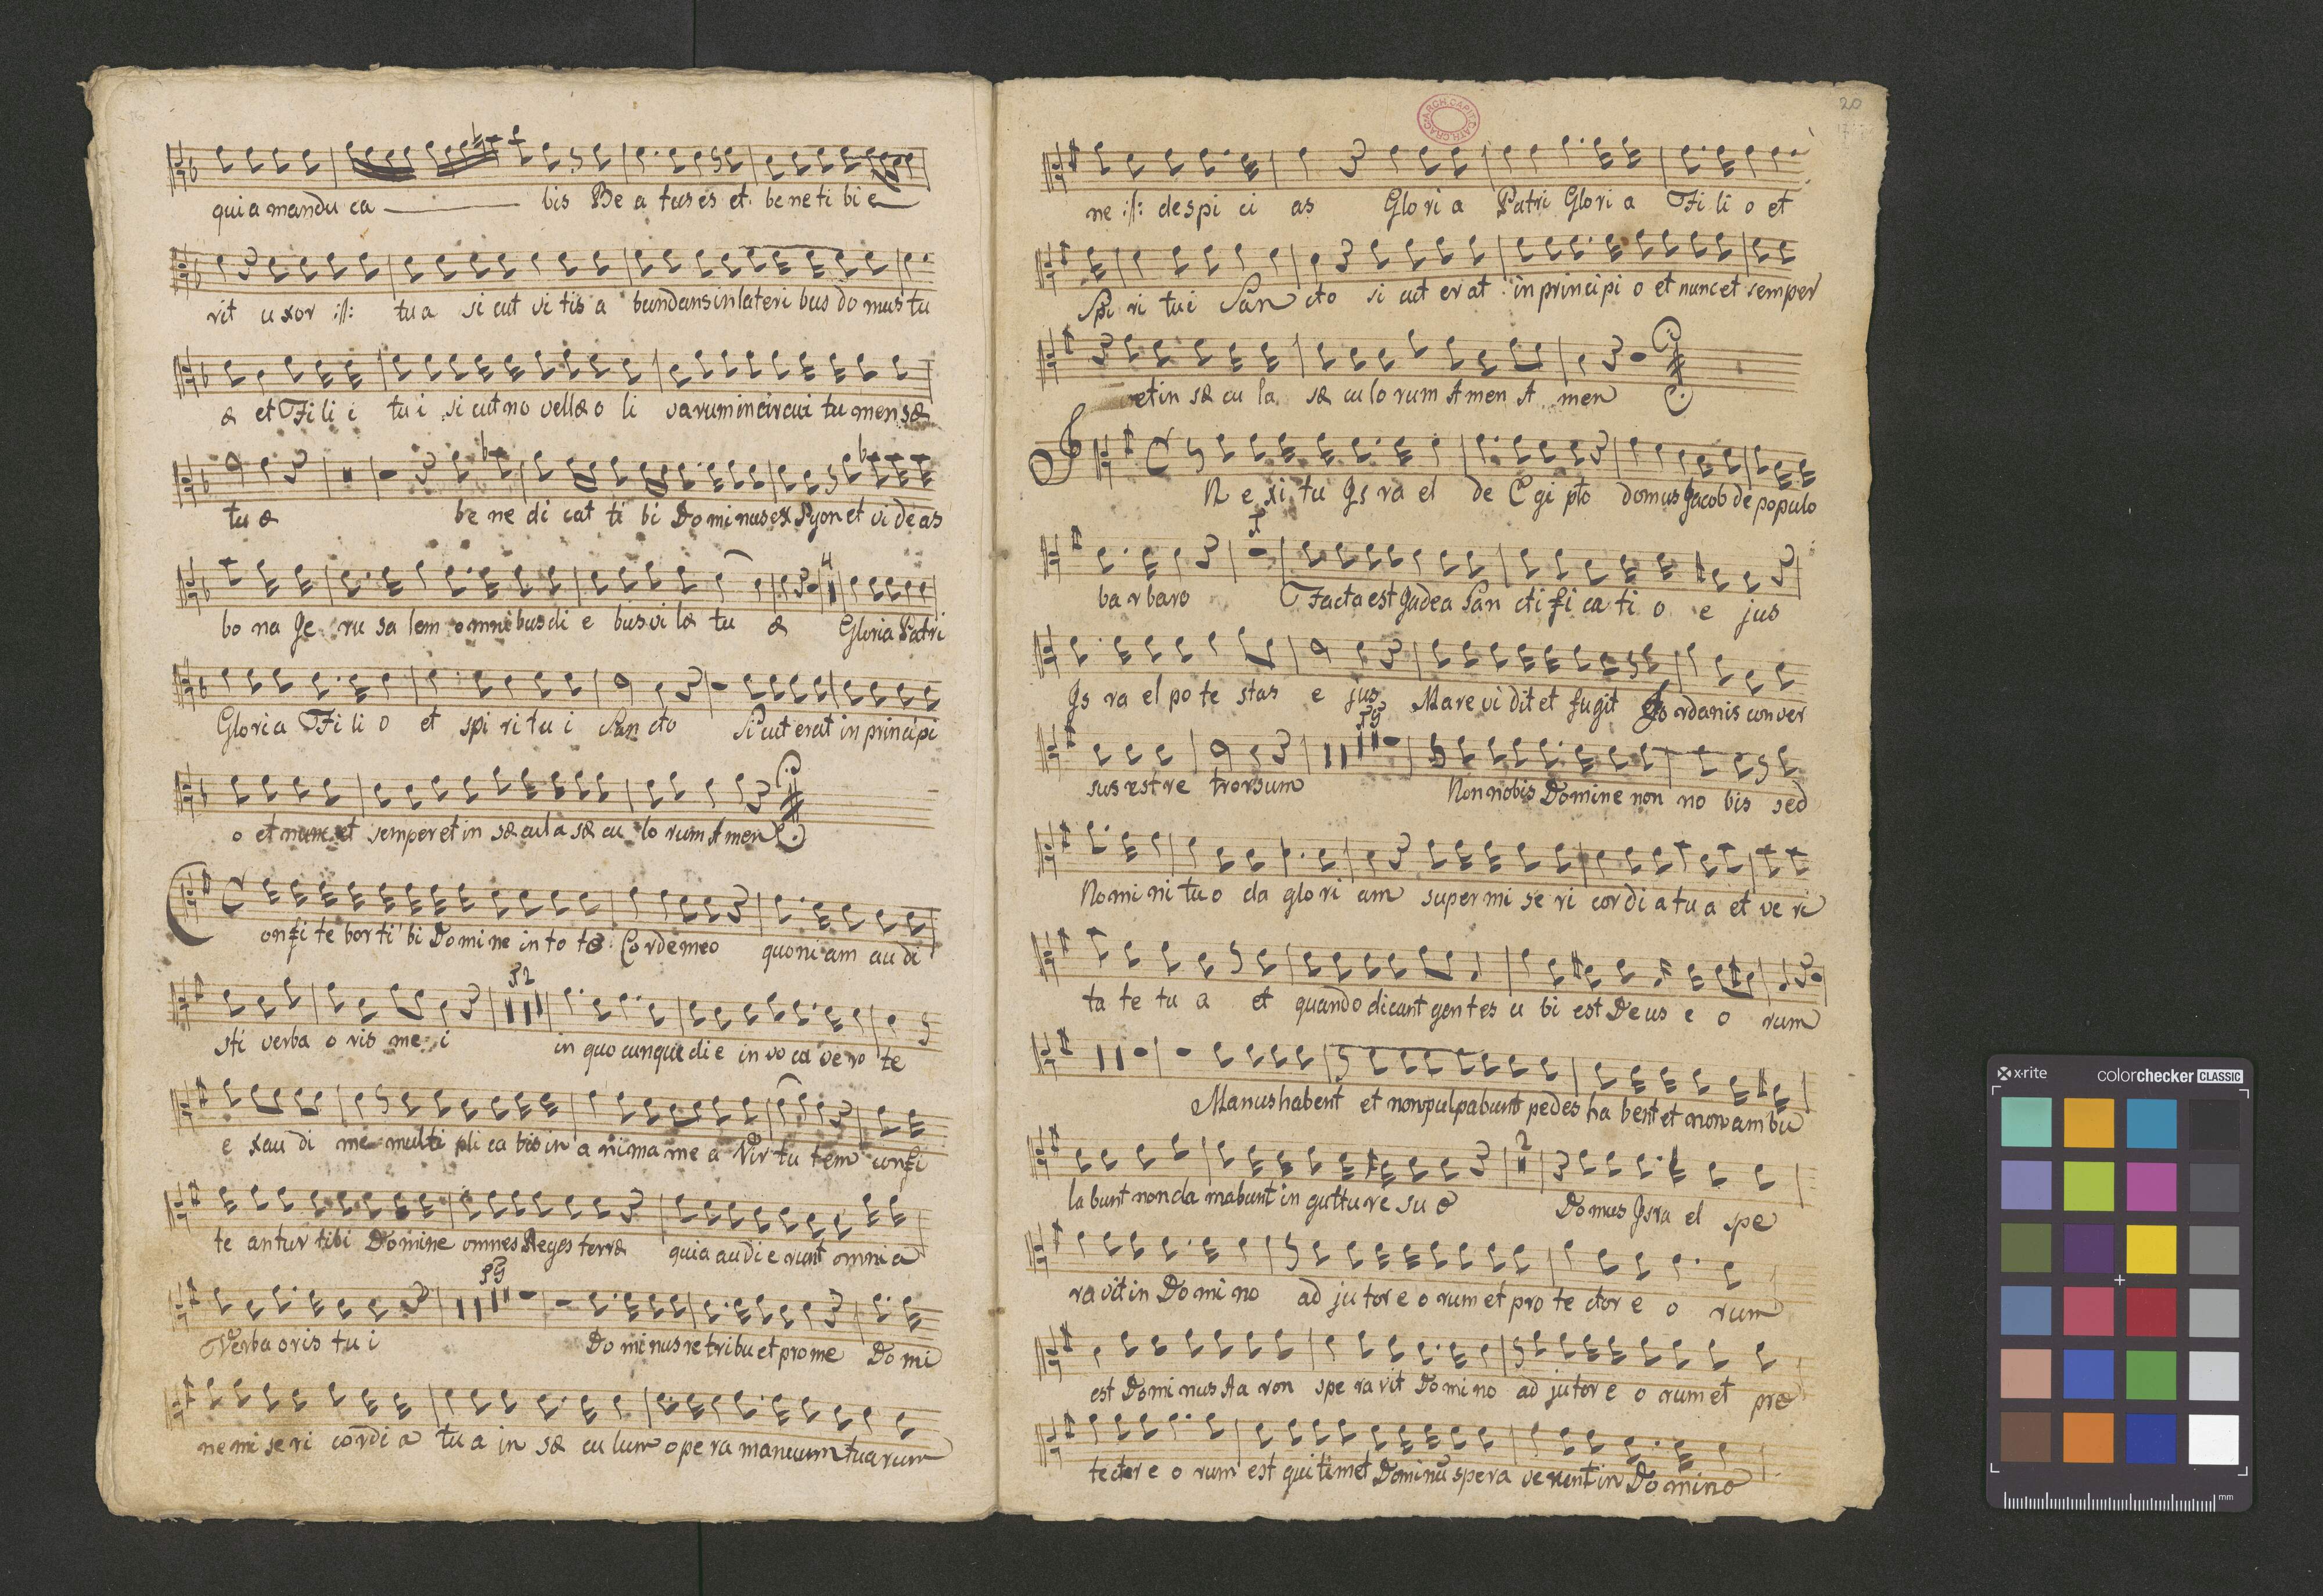 quia mandu ca bis Be a tus es et bene ti bi e
rit u xor :||: tu a si cut vi tis a bundans in lateri bus do mus tu
æ et Fi li i tu i si cut no vellæ o li varum in circui tu mensæ
tu æ be ne di cat ti bi Dominus ex Syon et vi de as
4
bo na Je ru sa lem omnibus di e bus vi tæ tu æ Gloria Patri
Gloria Fi li o et spi ri tu i San cto Sicut erat in principi
o et nunc et semper et in sæ cula sæ cu lo rum Amen
C onfi te bor ti bi Domine in to to Corde meo quoni am au di
12
sti verba o ris me i in quo cunque di e in vo ca ve ro te
e xau di me multi pli ca bis in a nima me a Vir tu tem confi
te antur tibi Domine omnes Reges terræ quia audi e runt omni a
19
Verba oris tu i Dominus retribu et pro me Domi
ne mi se ri cordi a tu a in sæ cu lum opera manuum tuarum
20
ARCH. CAPIT. CATH. CRAC.
ne :||: despi ci as Glori a Patri Glori a Fi li o et
Spi ri tui San cto si cut erat in principi o et nunc et semper
et in sæ cu la sæ cu lo rum Amen A men
I N e xi tu Is ra el de Egi pto domus Jacob de populo
1
barbaro Facta est Judea San cti fi ca ti o e jus
Is ra el po te stas e jus Mare vi dit et fugit Jo rdanis conver
19
sus est re trorsum Non nobis Domine non no bis sed
Nomini tu o da glori am super mi se ri cordi a tu a et ve ri
ta te tu a et quando dicant gentes u bi est Deus e o rum
Manus habent et non palpabunt pedes ha bent et non ambu
2
labunt non cla mabunt in gutture su o Domus Isra el spe
ravit in Domino ad jutor e o rum et pro te ctor e o rum
est Dominus Aa ron spe ravit Domino ad jutor e o rum et pro
tector e o rum est qui timet Dominū spera verunt in Domino
x-rite
colorchecker CLASSIC
mm